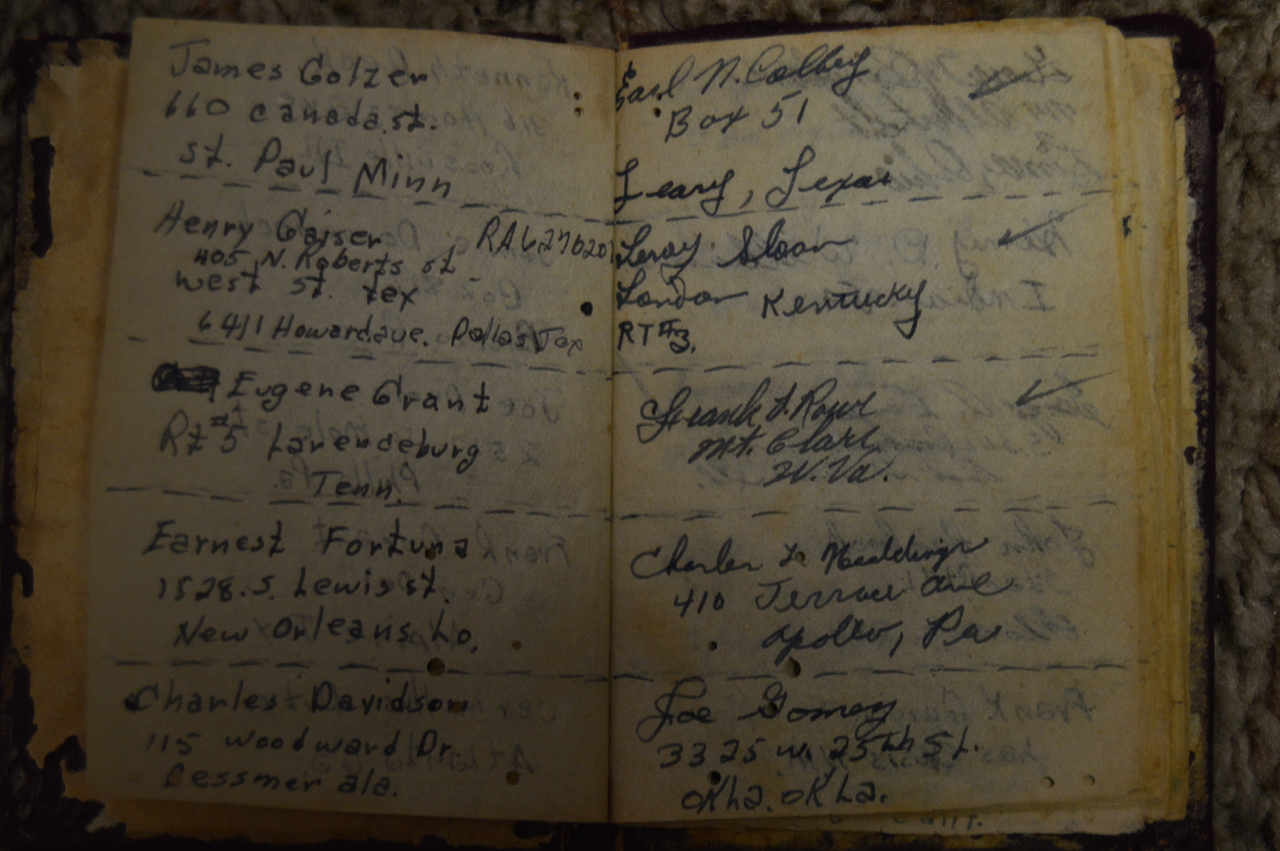 James Golzer
660 Canada.st.
st. Paul Minn
Henry Gaiser RA6276207
405 N. Roberts st
west st. tex
6411 Howard ave. Dallas Tex
Eugene Grant
Rt #5 Larendeburg
Tenn.
Earnest Fortuna
1528.S. Lewis st.
New Orleans, La.
Charles Davidson
115 woodward Dr.
Bessmer ala.
Earl N. Colbey
Box 51
Leary, Texas
Leroy Sloan
London Kentucky
RT #3.
Frank L. Rowe
Mt. Clare
W. Va.
Charles L. Neddings
410 Terrace Ave
Apollo, Pa
Joe Gomey
3325 w. 25th St.
okla. okla.